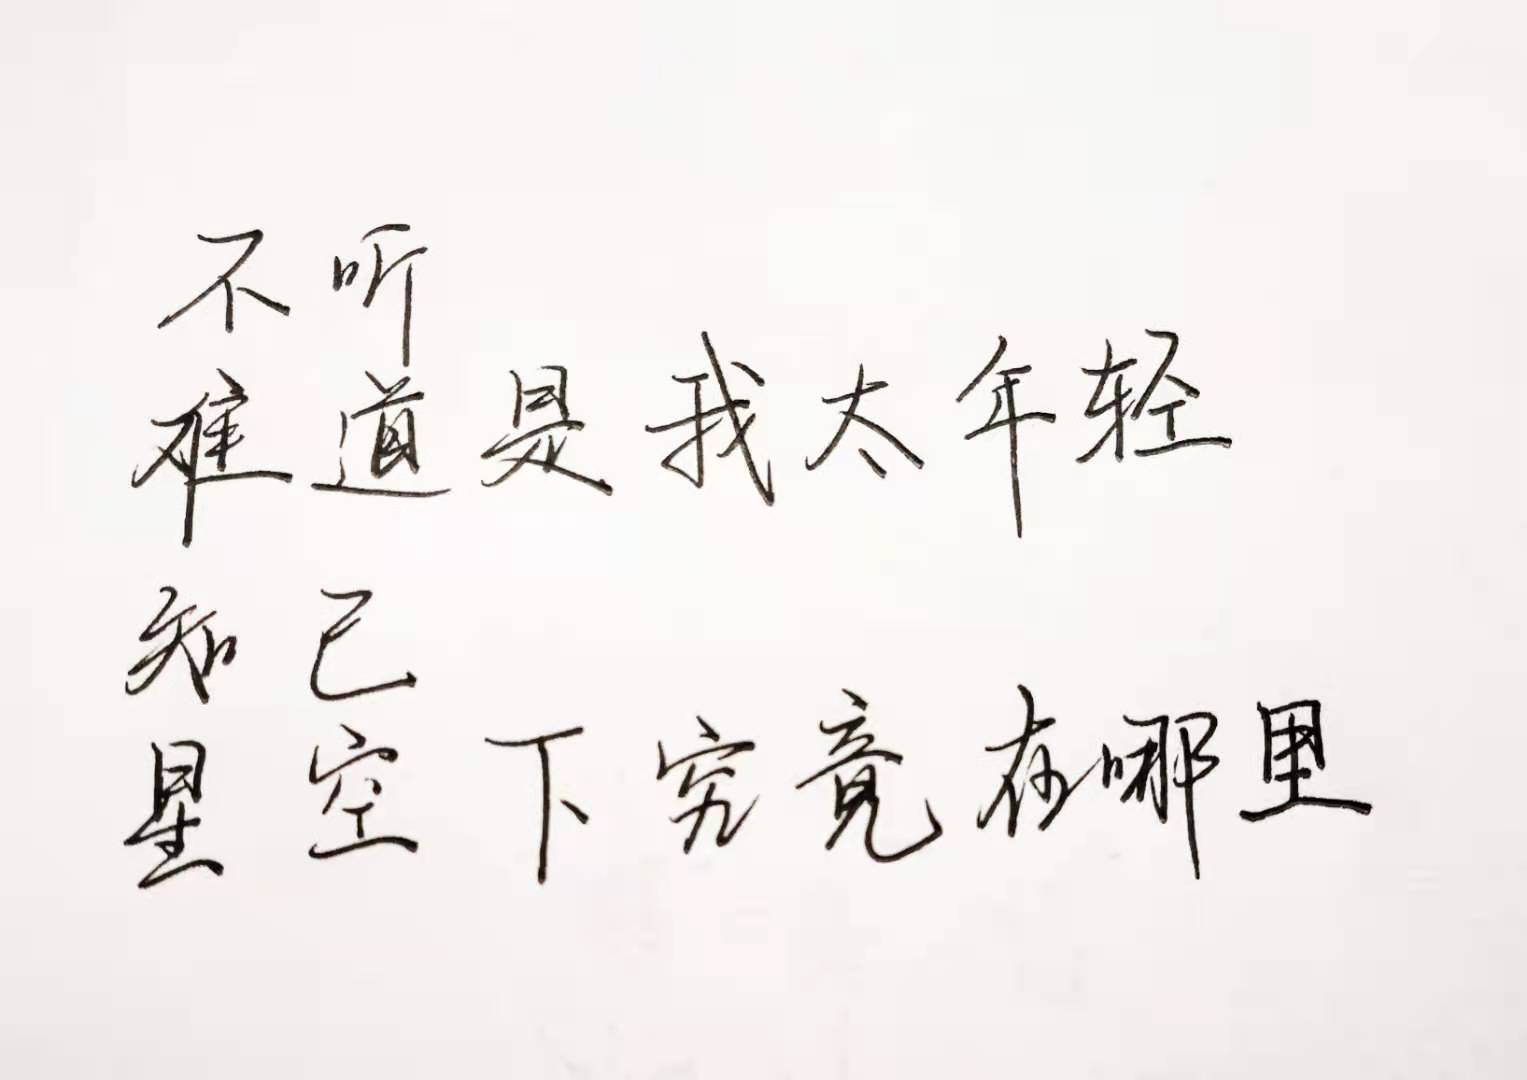 不听
难道是我太年轻
知己
星空下究竟在哪里